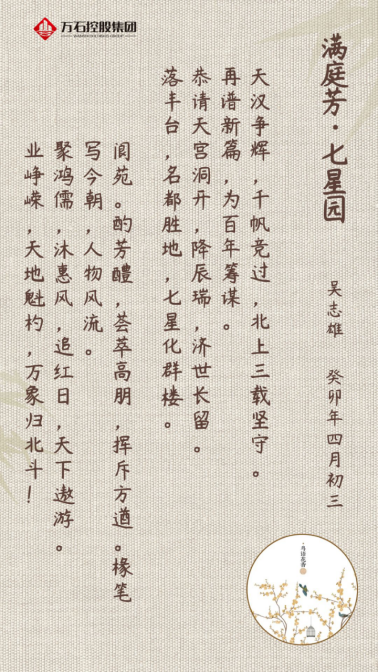 万石控股集团
满庭芳·七星园
吴志雄 癸卯年四月初三
天汉争辉，千帆竞过，北上三载坚守。
再谱新篇，为百年筹谋。
恭请天宫洞开，降辰瑞，济世长留。
落丰台，名都胜地，七星化群楼。
阆苑。酌芳醴，荟萃高朋，挥斥方遒。椽笔
写今朝，人物风流。
聚鸿儒，沐惠风，追红日，天下遨游。
业峥嵘，天地魁杓，万象归北斗！
鸟语花香